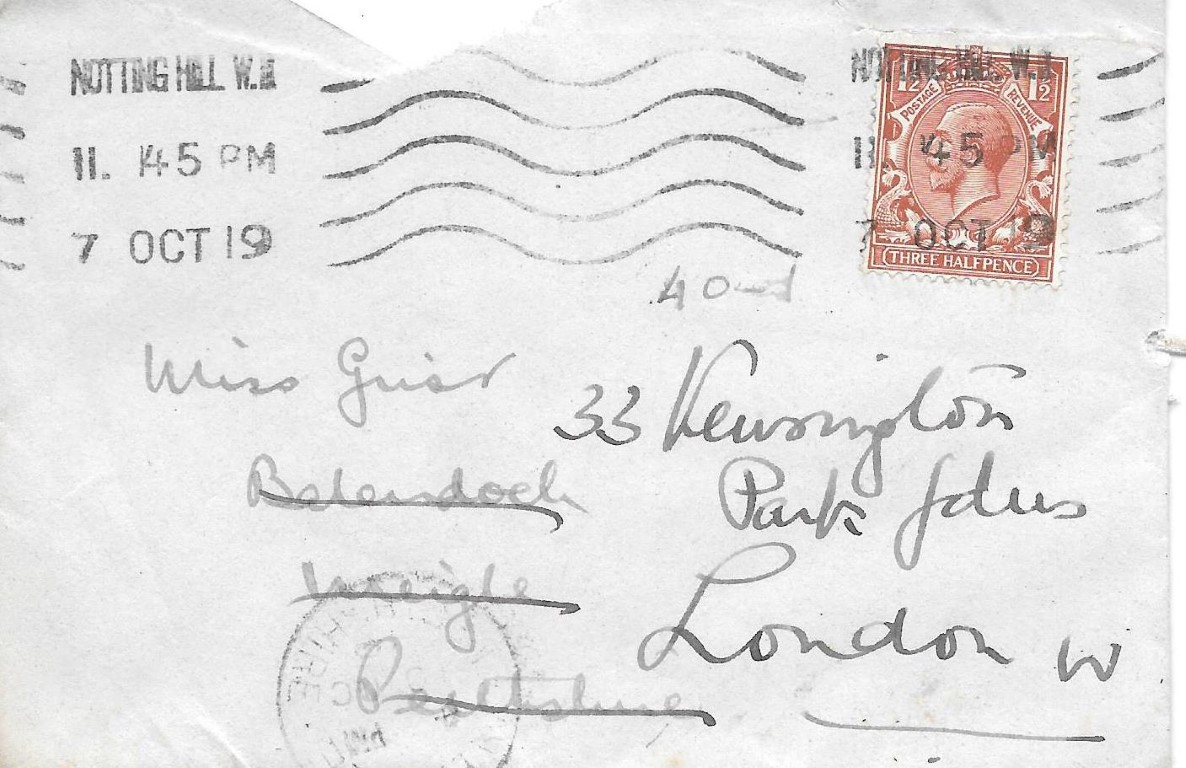 NOTTING HILL W.11
11.45 PM
7 OCT 19
NOTTING HILL W.11
11.45 PM
7 OCT 19
1½ 1½
POSTAGE REVENUE
THREE HALFPENCE
40
Miss
33 Kensington
Park Gdns
London W
Balendoch
Meigle
Perthshire
SHIRE